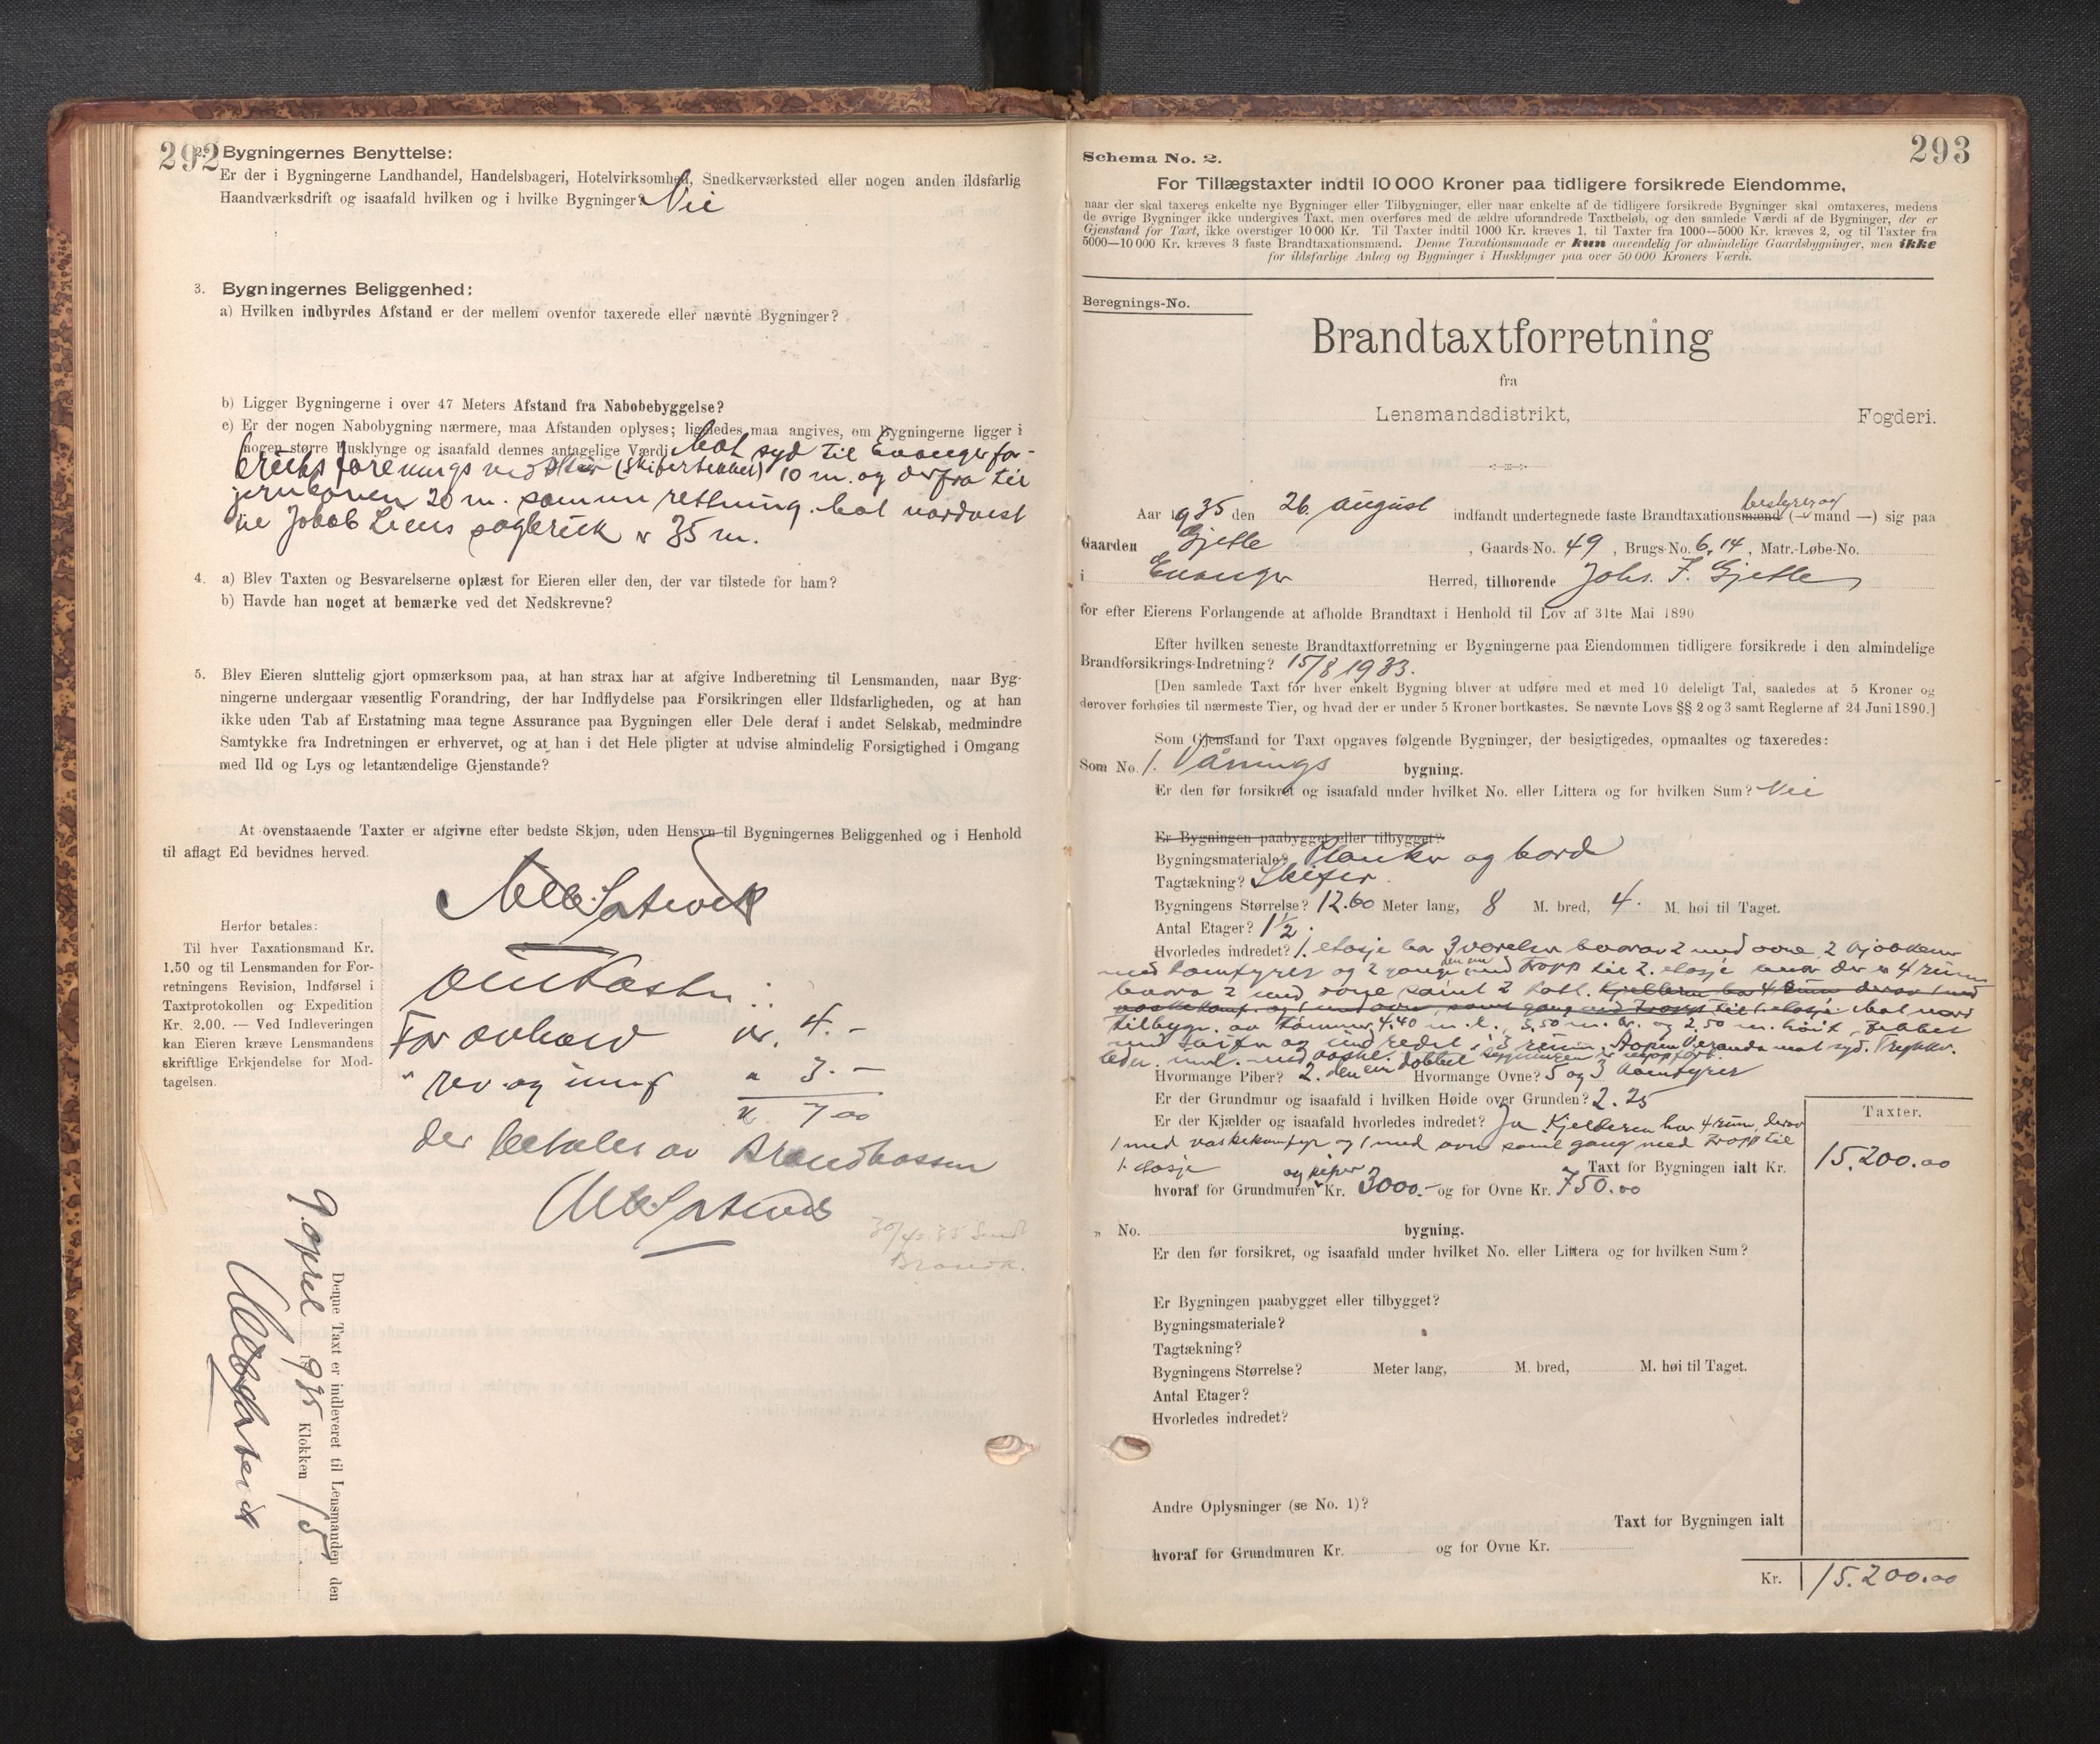 292
2. Bygningernes Benyttelse:
Er der i Bygningerne Landhandel, Handelsbageri, Hotelvirksomhed, Snedkerværksted eller nogen anden ildsfarlig
Haandværksdrift og isaafald hvilken og i hvilke Bygninger? Nei
3. Bygningernes Beliggenhed:
a) Hvilken indbyrdes Afstand er der mellem ovenfor taxerede eller nævnte Bygninger?
b) Ligger Bygningerne i over 47 Meters Afstand fra Nabobebyggelse?
c) Er der nogen Nabobygning nærmere, maa Afstanden oplyses; ligeledes maa angives, om Bygningerne ligger i
nogen større Husklynge og isaafald dennes antagelige Værdi. Mot syd til Evanger for-
bruksforenings (Skiferbekket) 10 m. og derfra til
jernbanen 20 m. samme rettning. Mot nordvest
til Jakob Liens sagbruk er 35 m.
4. a) Blev Taxten og Besvarelserne oplæst for Eieren eller den, der var tilstede for ham?
b) Havde han noget at bemærke ved det Nedskrevne?
5. Blev Eieren sluttelig gjort opmærksom paa, at han strax har at afgive Indberetning til Lensmanden, naar Byg-
ningerne undergaar væsentlig Forandring, der har Indflydelse paa Forsikringen eller Ildsfarligheden, og at han
ikke uden Tab af Erstatning maa tegne Assurance paa Bygningen eller Dele deraf i andet Selskab, medmindre
Samtykke fra Indretningen er erhvervet, og at han i det Hele pligter at udvise almindelig Forsigtighed i Omgang
med Ild og Lys og letantændelige Gjenstande?
At ovenstaaende Taxter er afgivne efter bedste Skjøn, uden Hensyn til Bygningernes Beliggenhed og i Henhold
til aflagt Ed bevidnes herved.
Herfor betales:
Til hver Taxationsmand Kr.
1.50 og til Lensmanden for For-
retningens Revision, Indførsel i
Taxtprotokollen og Expedition
Kr. 2.00. — Ved Indleveringen
kan Eieren kræve Lensmandens
skriftlige Erkjendelse for Mod-
tagelsen.
Omkostn.:
For avhold kr. 4.-
" rev. og innf " 3.-
kr 7.00
der betales av Brandkassen
30/4-35 Sendt
Brandk.
Denne Taxt er indleveret til Lensmanden den
9. april 1935 Klokken 15
293
Schema No. 2.
For Tillægstaxter indtil 10 000 Kroner paa tidligere forsikrede Eiendomme,
naar der skal taxeres enkelte nye Bygninger eller Tilbygninger, eller naar enkelte af de tidligere forsikrede Bygninger skal omtaxeres, medens
de øvrige Bygninger ikke undergives Taxt, men overføres med de ældre uforandrede Taxtbeløb, og den samlede Værdi af de Bygninger, der er
Gjenstand for Taxt, ikke overstiger 10 000 Kr. Til Taxter indtil 1000 Kr. kræves 1, til Taxter fra 1000—5000 Kr. kræves 2, og til Taxter fra
5000—10 000 Kr. kræves 3 faste Brandtaxationsmænd. Denne Taxationsmaade er kun anvendelig for almindelige Gaardsbygninger, men ikke
for ildsfarlige Anlæg og Bygninger i Husklynger paa over 50 000 Kroners Værdi.
Beregnings-No.
Brandtaxtforretning
fra
Lensmandsdistrikt, Fogderi.
bestyrer og
Aar 1935 den 26. august indfandt undertegnede faste Brandtaxationsmænd (— mand —) sig paa
Gaarden Gjetle, Gaards-No. 49, Brugs-No. 6, 14, Matr.-Løbe-No.
i Evanger Herred, tilhørende Johs. J. Gjetle
for efter Eierens Forlangende at afholde Brandtaxt i Henhold til Lov af 31te Mai 1890
Efter hvilken seneste Brandtaxtforretning er Bygningerne paa Eiendommen tidligere forsikrede i den almindelige
Brandforsikrings-Indretning? 15/8 1933.
[Den samlede Taxt for hver enkelt Bygning bliver at udføre med et med 10 deleligt Tal, saaledes at 5 Kroner og
derover forhøies til nærmeste Tier, og hvad der er under 5 Kroner bortkastes. Se nævnte Lovs §§ 2 og 3 samt Reglerne af 24 Juni 1890.]
Som Gjenstand for Taxt opgaves følgende Bygninger, der besigtigedes, opmaaltes og taxeredes:
Som No. 1. Vånings bygning.
Er den før forsikret og isaafald under hvilket No. eller Littera og for hvilken Sum? Nei
Er Bygningen paabygget eller tilbygget?
Bygningsmateriale? Planker og bord
Tagtækning? Skifer.
Bygningens Størrelse? 12.60 Meter lang, 8 M. bred, 4. M. høi til Taget.
Antal Etager? 1 1/2.
Hvorledes indredet? 1. etasje har 3 værelser hvorav 2 med ovne, 2 kjøkkener
med komfyrer og 2 ganger med tropp til 2. etasje hvor der er 4 rum
hvorav 2 med ovne samt 2 kott. Kjelleren har 4 rum derav 1 med
vaskekomf. og 1 med ovn, samt gang med tropp til 1. etasje. Mot nord
tilbygn. av tømmer 4.40 m. l., 3.50 m. br. og 2.50 m. høit, tekket
med skifer og innredet i 3 rum. Åpen Veranda mot syd.
Hvormange Piber? 2. den ene dobbel Hvormange Ovne? 5 og 3 komfyrer
Er der Grundmur og isaafald i hvilken Høide over Grunden? 2.25
Er der Kjælder og isaafald hvorledes indredet? Ja Kjelleren har 4 rum, derav
1 med vaskekomfyr og 1 med ovn samt gang med tropp til
1. etasje
Taxter.
Taxt for Bygningen ialt Kr. 15.200.00
og piper
hvoraf for Grundmuren Kr. 3000.- og for Ovne Kr. 750.00
„ No. bygning.
Er den før forsikret, og isaafald under hvilket No. eller Littera og for hvilken Sum?
Er Bygningen paabygget eller tilbygget?
Bygningsmateriale?
Tagtækning?
Bygningens Størrelse? Meter lang, M. bred, M. høi til Taget.
Antal Etager?
Hvorledes indredet?
Andre Oplysninger (se No. 1)?
Taxt for Bygningen ialt
hvoraf for Grundmuren Kr. og for Ovne Kr.
Kr. 15.200.00